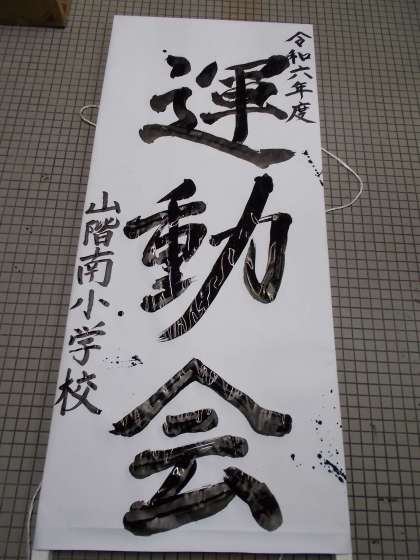 令和六年度
運動会
山階南小学校